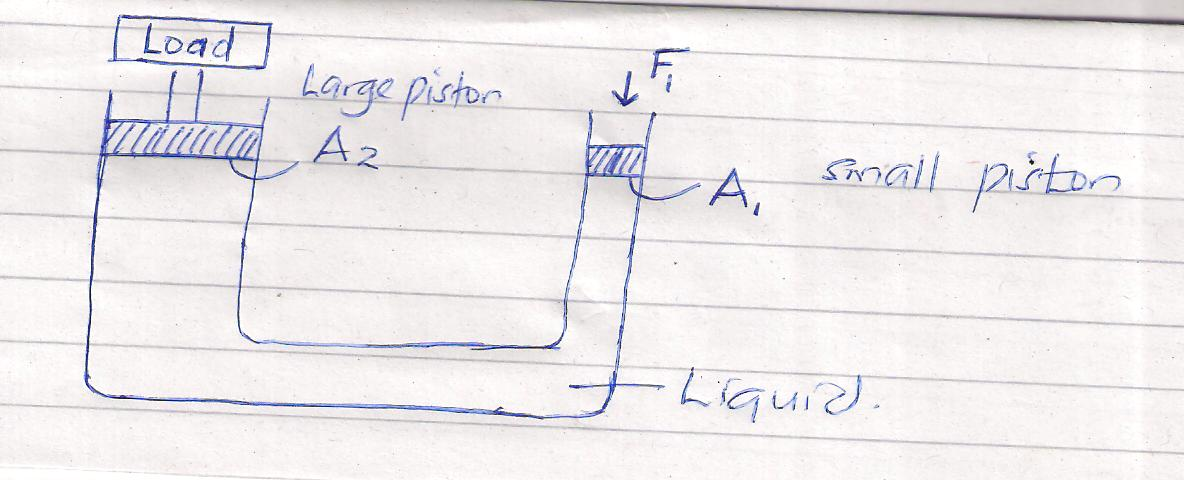 Load
Large piston
F1
A2
A1
small piston
Liquid.